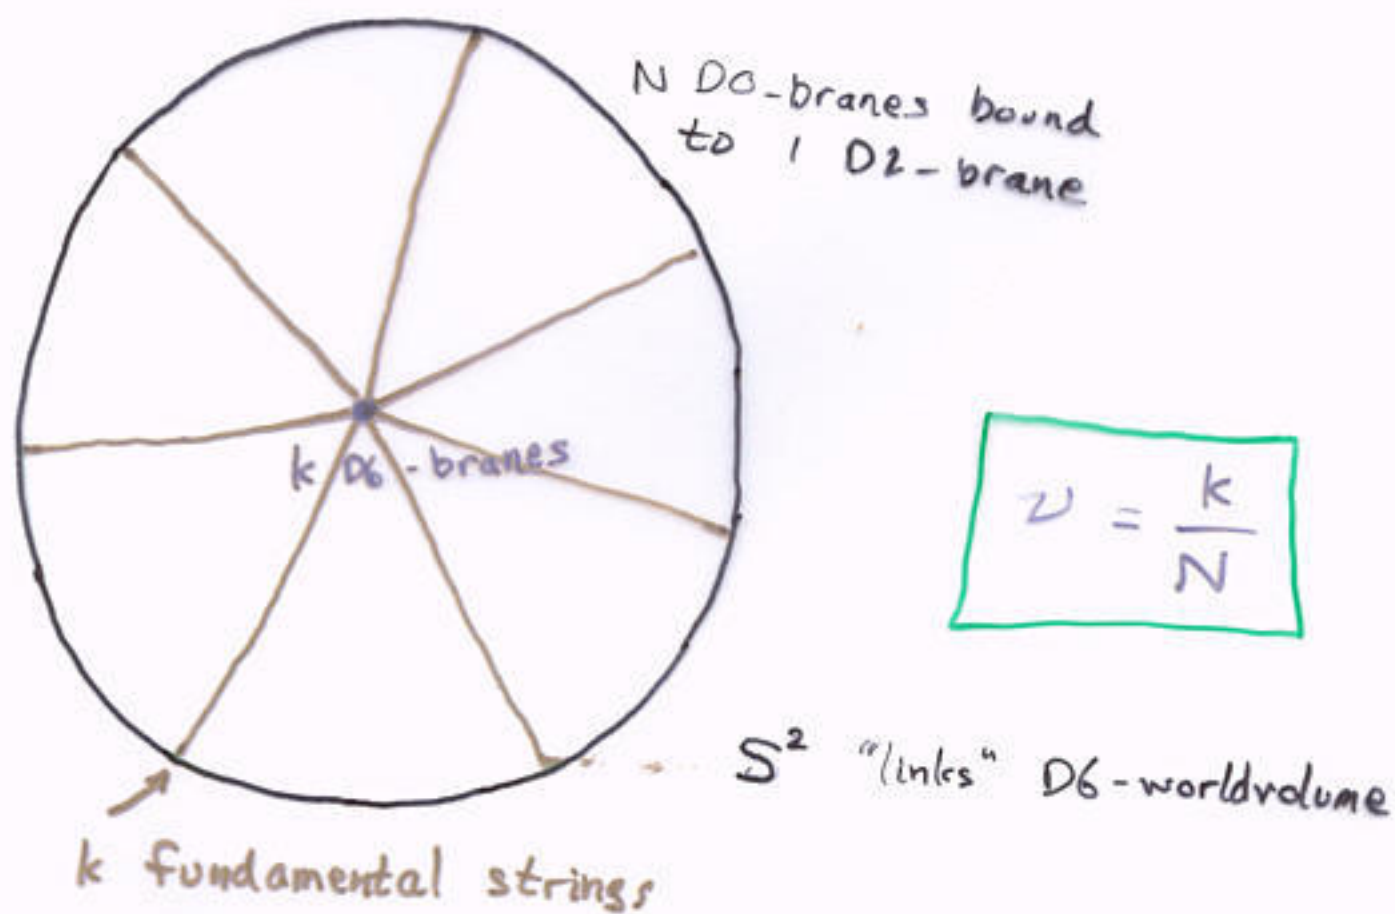 N D0-branes bound
to 1 D2-brane
k D6-branes
ν = k/N
S² "links" D6-worldvolume
k fundamental strings